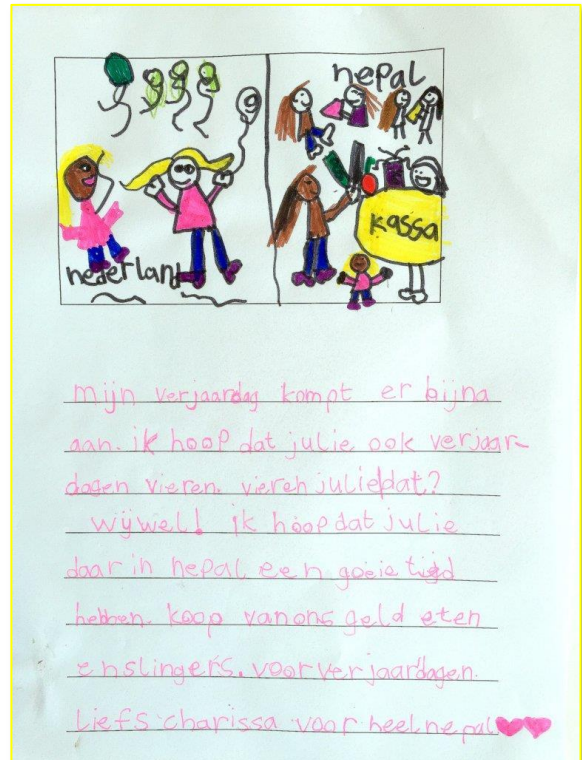 nepal
kassa
nederland
mijn verjaardag kompt er bijna
aan. ik hoop dat julie ook verjaar-
dagen vieren. vieren julie dat?
wij wel! ik hoop dat julie
daar in nepal een goeie tijd
hebben. koop van ons geld eten
en slingers. voor verjaardagen.
Liefs charissa voor heel nepal